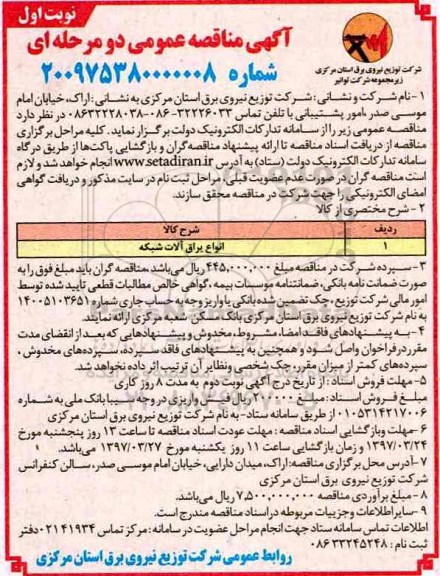 نوبت اول
آگهی مناقصه عمومی دو مرحله ای
شماره ۲۰۰۹۷۵۳۸۰۰۰۰۰۰۸
شرکت توزیع نیروی برق استان مرکزی
زیرمجموعه شرکت توانیر
۱-نام شرکت و نشانی : شرکت توزیع نیروی برق استان مرکزی به نشانی : اراک، خیابان امام
موسی صدر، امور پشتیبانی با تلفن تماس ۳۲۲۲۶۰۳۳-۰۸۶ ۰۸۶۳۲۲۲۸۰۳۸ در نظر دارد
مناقصه عمومی زیر را از سامانه تدارکات الکترونیک دولت برگزار نماید. کلیه مراحل برگزاری
مناقصه از دریافت اسناد مناقصه تا ارائه پیشنهاد مناقصه گران و بازگشایی پاکت‌ها از طریق درگاه
سامانه تدارکات الکترونیک دولت (ستاد) به آدرس www.setadiran.ir انجام خواهد شد و لازم
است مناقصه گران در صورت عدم عضویت قبلی، مراحل ثبت نام در سایت مذکور و دریافت گواهی
امضای الکترونیکی را جهت شرکت در مناقصه محقق سازند.
۲- شرح مختصری از کالا
ردیف شرح کالا
۱ انواع یراق آلات شبکه
۳- سپرده شرکت در مناقصه مبلغ ۴۴۵,۰۰۰,۰۰۰ ریال می‌باشد، مناقصه گران باید مبلغ فوق را به
صورت ضمانت نامه بانکی، ضمانتنامه موسسات بیمه، گواهی خالص مطالبات قطعی تایید شده توسط
امور مالی شرکت توزیع، چک تضمین شده بانکی یا واریز وجه به حساب جاری شماره ۱۴۰۰۵۱۰۳۶۵۱
به نام شرکت توزیع نیروی برق استان مرکزی بانک مسکن شعبه مرکزی ارائه نمایند.
۴- به پیشنهادهای فاقد امضا، مشروط، مخدوش و پیشنهادهایی که بعد از انقضای مدت
مقرر در فراخوان واصل شود و همچنین به پیشنهادهای فاقد سپرده، سپرده‌های مخدوش،
سپرده‌های کمتر از میزان مقرر، چک شخصی و نظایر آن ترتیب اثر داده نخواهد شد.
۵- مهلت فروش اسناد : از تاریخ درج آگهی نوبت دوم به مدت ۸ روز کاری
مبلغ فروش اسناد : مبلغ ریال واریزی در وجه سیبا بانک ملی به شماره
۰۱۰۵۳۱۴۲۱۷۰۰۶ از طریق سامانه ستاد-به نام شرکت توزیع نیروی برق استان مرکزی
۶- مهلت و بازگشایی اسناد مناقصه : مهلت عودت اسناد مناقصه تا ساعت ۱۳ روز پنجشنبه مورخ
۱۳۹۷/۰۳/۲۴ و زمان بازگشایی ساعت ۱۱ روز یکشنبه مورخ ۱۳۹۷/۰۳/۲۷ می‌باشد.
۷-آدرس محل برگزاری مناقصه: اراک، میدان دارایی، خیابان امام موسی صدر، سالن کنفرانس
شرکت توزیع نیروی برق استان مرکزی
۸- مبلغ برآوردی مناقصه ۷,۵۰۰,۰۰۰,۰۰۰ ریال می‌باشد.
۹- سایر اطلاعات و جزییات مربوطه در اسناد مناقصه مندرج است.
اطلاعات تماس سامانه ستاد جهت انجام مراحل عضویت در سامانه: مرکز تماس ۰۲۱۴۱۹۳۴ دفتر
ثبت نام : ۰۸۶۳۳۲۴۵۲۴۸
روابط عمومی شرکت توزیع نیروی برق استان مرکزی